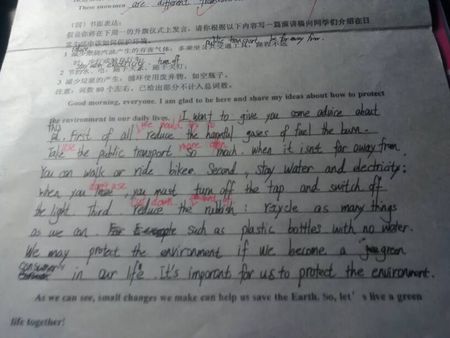 These snowmen are different
(四) 书面表达:
假设你将在下周一的升旗仪式上发言, 请你根据以下内容写一篇演讲稿向同学们介绍在日
常生活中该如何保护环境。
1 减少燃烧汽油产生的有害气体, 多乘坐公共交通工具, 路程不远
public transport be far away from
2 节约水、电:
turn off
3 减少垃圾的产生, 循环使用废弃物, 如空瓶子。
注意: 词数 80 个左右, 已给出部分不计入总词数。
Good morning, everyone. I am glad to be here and share my ideas about how to protect
the environment in our daily lives. I want to give you come advice about
this
we need to
it. First of all, reduce the harmful gases of fuel the burn.
use
more often
Take the public transport so much. when it isnt far away from.
You can walk or ride bike. Second, stay water and electricity:
don't use
when you have, you must turn off the tap and switch off
cut down
the light. Third reduce the rubbish: recycle as many things
as we can such as plastic bottles with no water.
We may protect the environment if we become a green
consumer
in our life. It's imporant for us to protect the environment.
As we can see, small changes we make can help us save the Earth. So, let's live a green
life together!